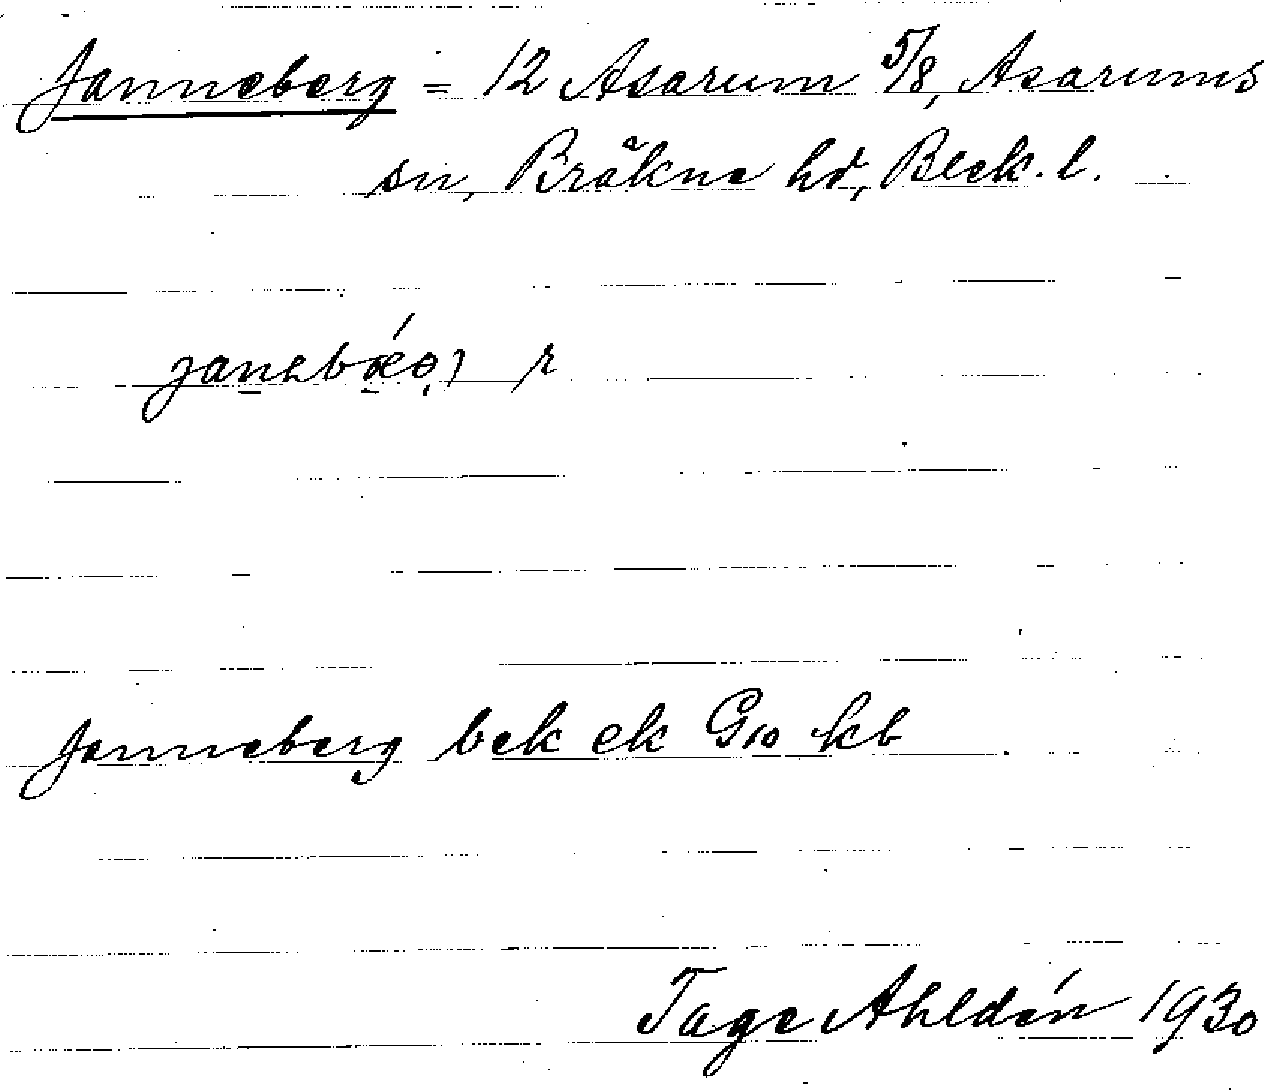 Janneberg = 12 Asarum 5/8, Asarums
sn, Bräkne hd, Blek. l.
Janneberg bek ek G10 kb
Tage Ahldén 1930